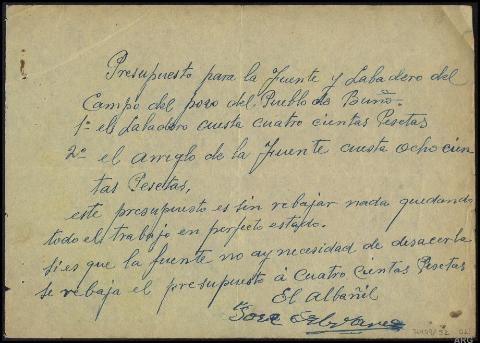 Presupuesto para la Fuente y Labadero del
Campo del pozo del Pueblo de Buño.
1º el Labadero cuesta cuatro cientas Pesetas
2º el arreglo de la Fuente cuesta ocho cien
tas Pesetas,
este presupuesto es sin rebajar nada quedando
todo el trabajo en perfecto estado.
si es que la fuente no ay necesidad de desacerla
se rebaja el presupuesto á cuatro cientas Pesetas
El Albañil
Jose
ARG